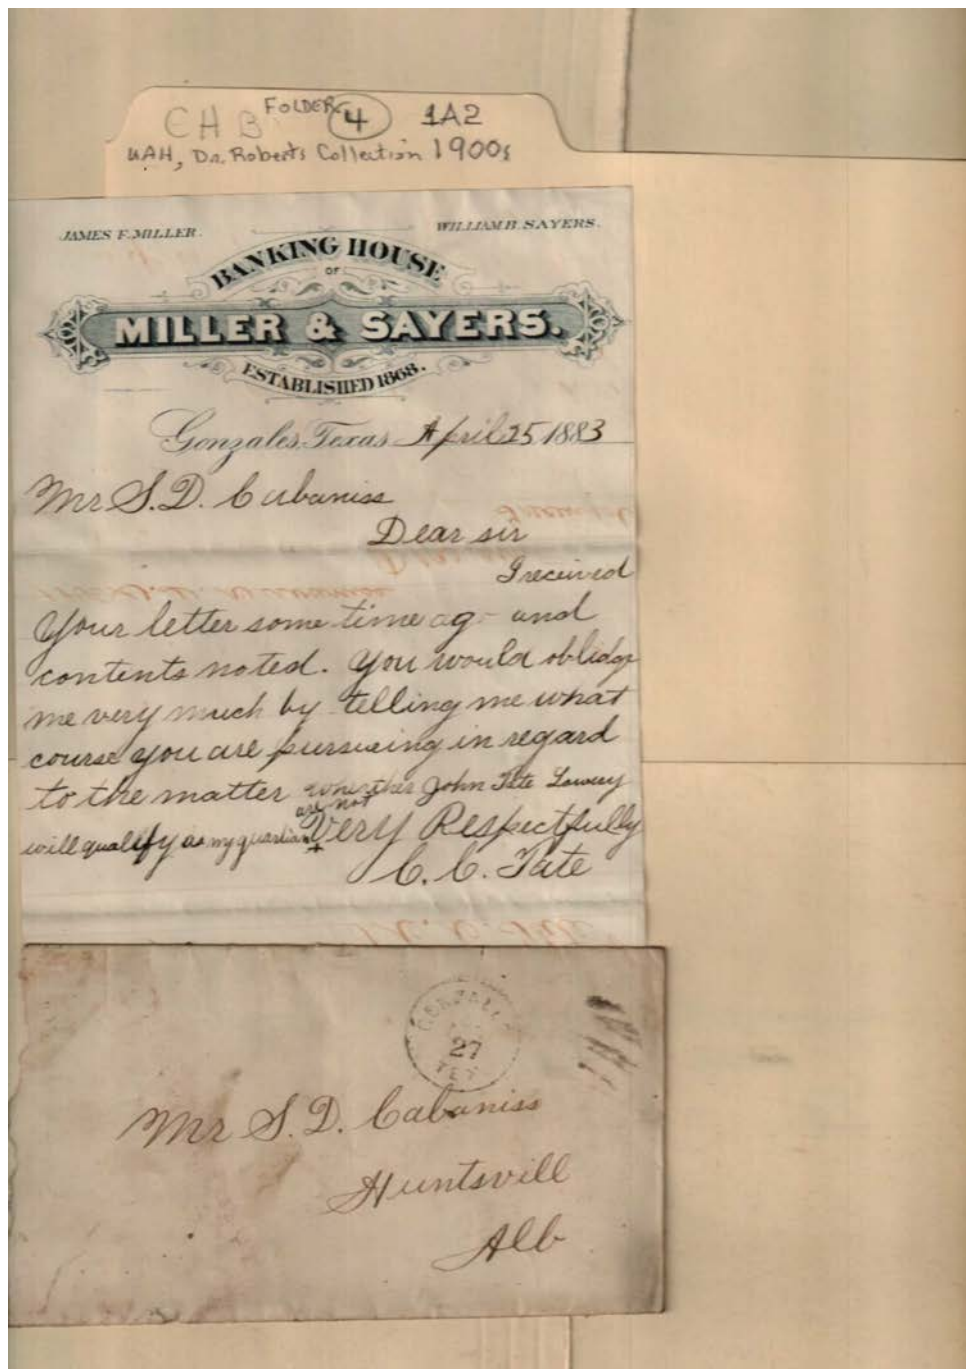 CHB FOLDER 4 1A2
UAH, Dr. Roberts Collection 1900s
JAMES F. MILLER. WILLIAM B. SAYERS.
BANKING HOUSE
OF
MILLER & SAYERS.
ESTABLISHED 1868.
Gonzales, Texas April 25 1883
Mr S. D. Cabaniss
Dear sir
I received
Your letter some time ag and
contents noted. You would oblidge
me very much by telling me what
course you are pursueing in regard
to the matter whether John Tate Lowry
are not
will qualify as my guardian Very Respectfully
C. C. Tate
GONZALES
27
TEX
Mr S. D. Cabaniss
Huntsvill
Alb